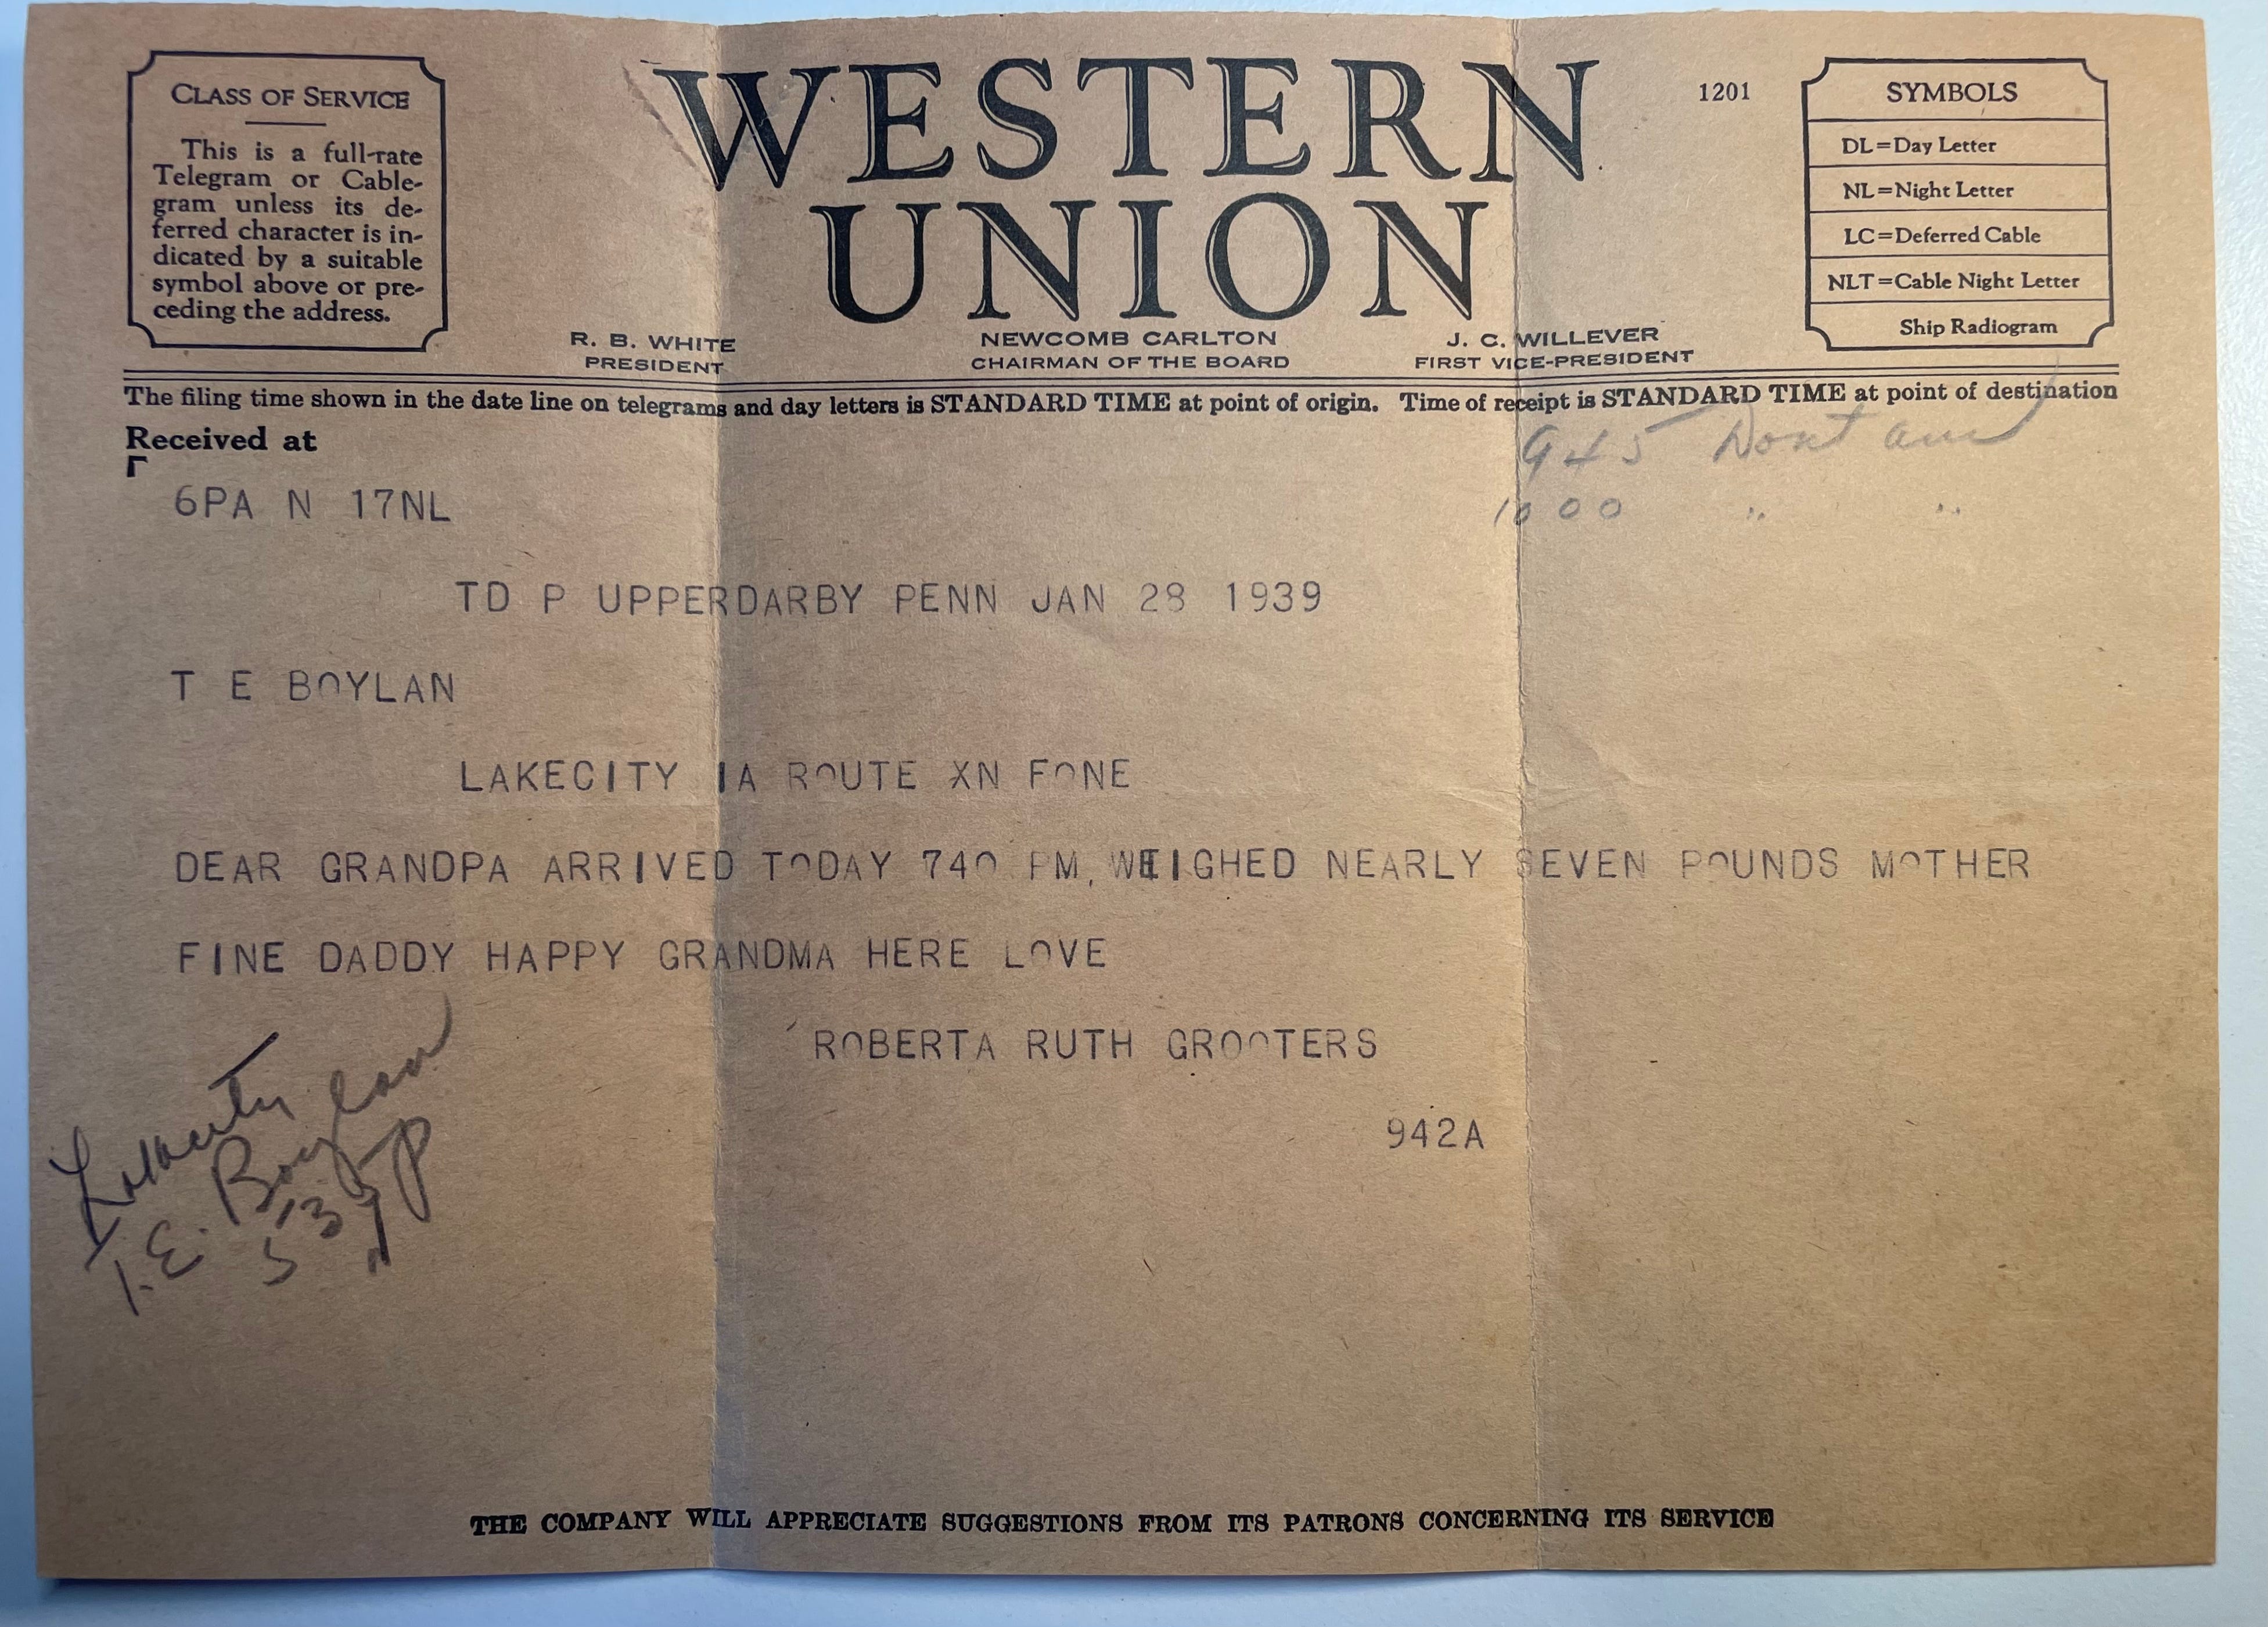 CLASS OF SERVICE
This is a full-rate
Telegram or Cable-
gram unless its de-
ferred character is in-
dicated by a suitable
symbol above or pre-
ceding the address.
WESTERN
UNION
1201
SYMBOLS
DL=Day Letter
NL=Night Letter
LC=Deferred Cable
NLT=Cable Night Letter
Ship Radiogram
R. B. WHITE
PRESIDENT
NEWCOMB CARLTON
CHAIRMAN OF THE BOARD
J. C. WILLEVER
FIRST VICE-PRESIDENT
The filing time shown in the date line on telegrams and day letters is STANDARD TIME at point of origin. Time of receipt is STANDARD TIME at point of destination
Received at
945 Dont ans
1000 " "
6PA N 17NL
TD P UPPERDARBY PENN JAN 28 1939
T E BOYLAN
LAKECITY IA ROUTE XN FONE
DEAR GRANDPA ARRIVED TODAY 740 PM, WEIGHED NEARLY SEVEN POUNDS MOTHER
FINE DADDY HAPPY GRANDMA HERE LOVE
ROBERTA RUTH GROOTERS
942A
T.E. Boylan
THE COMPANY WILL APPRECIATE SUGGESTIONS FROM ITS PATRONS CONCERNING ITS SERVICE